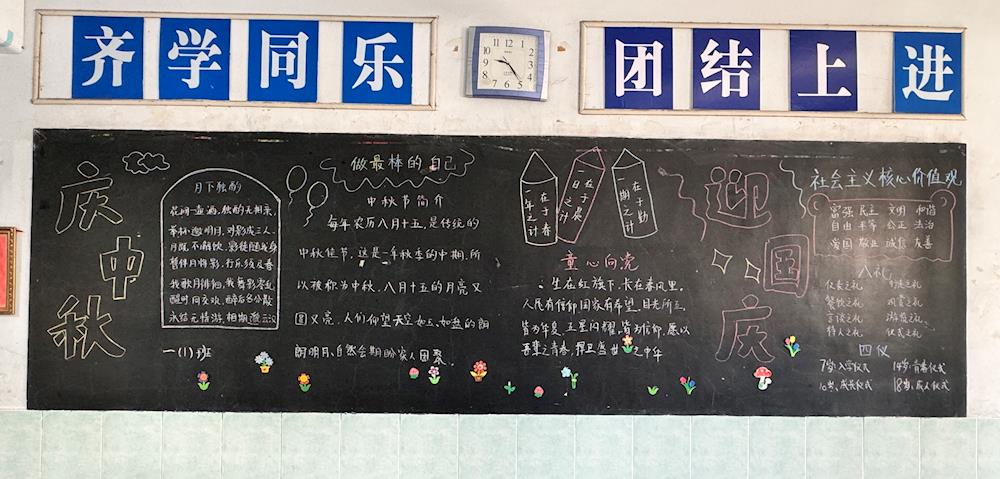 齐学同乐
团结上进
12
1
2
3
4
5
6
7
8
9
10
11
庆中秋
月下独酌
花间一壶酒，独酌无相亲
举杯邀明月，对影成三人
月既不解饮，影徒随我身
暂伴月将影，行乐须及春
我歌月徘徊，我舞影零乱
醒时同交欢，醉后各分散
永结无情游，相期邈云汉
一(1)班
做最棒的自己
中秋节简介
每年农历八月十五，是传统的
中秋佳节，这是一年秋季的中期，所
以被称为中秋。八月十五的月亮又
圆又亮，人们仰望天空如玉如盘的朗
朗明月、自然会期盼家人团聚
一年之计
在于春
一日之计
在于晨
一期之计
在于勤
童心向党
生在红旗下，长在春风里。
人民有信仰国家有希望。目光所至，
皆为华夏，五星闪耀，皆为信仰，愿以
吾辈之青春，捍卫盛世之中华
迎国庆
社会主义核心价值观
富强 民主 文明 和谐
自由 平等 公正 法治
爱国 敬业 诚信 友善
八礼
仪表之礼 行走之礼
餐饮之礼 观赏之礼
言谈之礼 游览之礼
待人之礼 仪式之礼
四仪
7岁：入学仪式 14岁：青春仪式
10岁、成长仪式 18岁、成人仪式